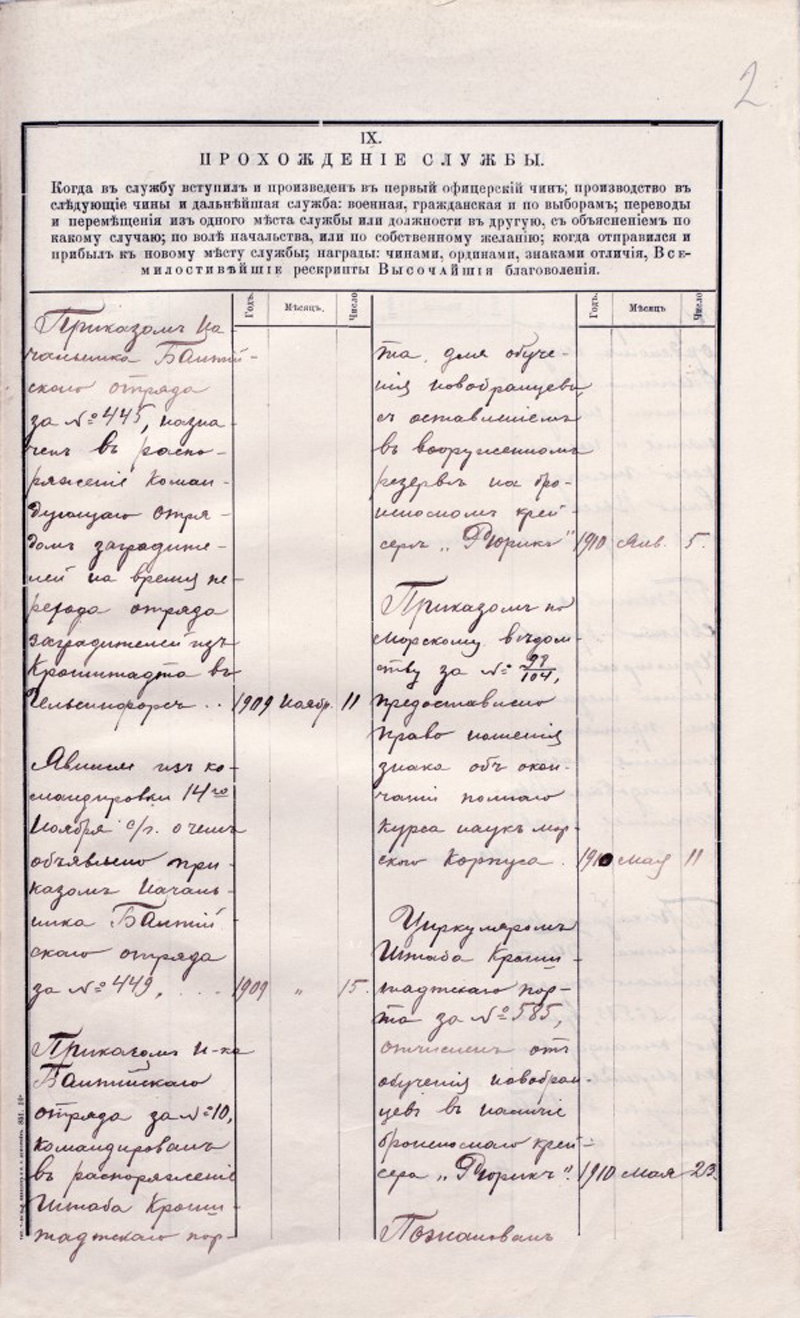 2
IX.
ПРОХОЖДЕНІЕ СЛУЖБЫ.
Когда въ службу вступилъ и произведенъ въ первый офицерскій чинъ; производство въ
слѣдующіе чины и дальнѣйшая служба: военная, гражданская и по выборамъ; переводы
и перемѣщенія изъ одного мѣста службы или должности въ другую, съ объясненіемъ по
какому случаю; по волѣ начальства, или по собственному желанію; когда отправился и
прибылъ къ новому мѣсту службы; награды: чинами, ординами, знаками отличія, Все-
милостивѣйшіе рескрипты Высочайшія благоволенія.
Годъ. Мѣсяцъ. Число
Приказомъ На
чальника Балтій-
скаго отряда
за № 445, назна
ченъ въ распо-
ряженіе Коман-
дующаго отря-
домъ заградите-
лей на время пе-
рехода отряда
заградителей изъ
Кронштадта въ
Гельсингфорсъ .. 1909 Ноябр. 11
Явился изъ ко-
мандировки 14го
Ноября с/г. о чемъ
объявлено при-
казомъ Началь-
ника Балтій
скаго отряда
за № 449, . . . 1909 " 15.
Приказомъ Н-ка
Балтійскаго
отряда за № 10,
командированъ
въ распоряженіе
Штаба Кронш-
тадтскаго пор-
Годъ. Мѣсяцъ Число
та, для обуче-
нія новобранцевъ,
съ оставленіемъ
въ вооруженномъ
резервѣ на бро-
неносномъ крей-
серѣ „Рюрикъ" 1910 Янв. 5.
Приказомъ по
Морскому вѣдом-
ству за № 99/104,
предоставлено
право ношенія
знака объ окон-
чаніи полнаго
курса наукъ мор-
скаго Корпуса . 1910 мая 11
Циркуляромъ
Штаба Кронш-
тадтскаго пор-
та за № 585,
отчисленъ отъ
обученія новобран-
цевъ въ наличіе
броненоснаго крей-
сера „Рюрикъ". 1910 мая 23.
Пожалованъ